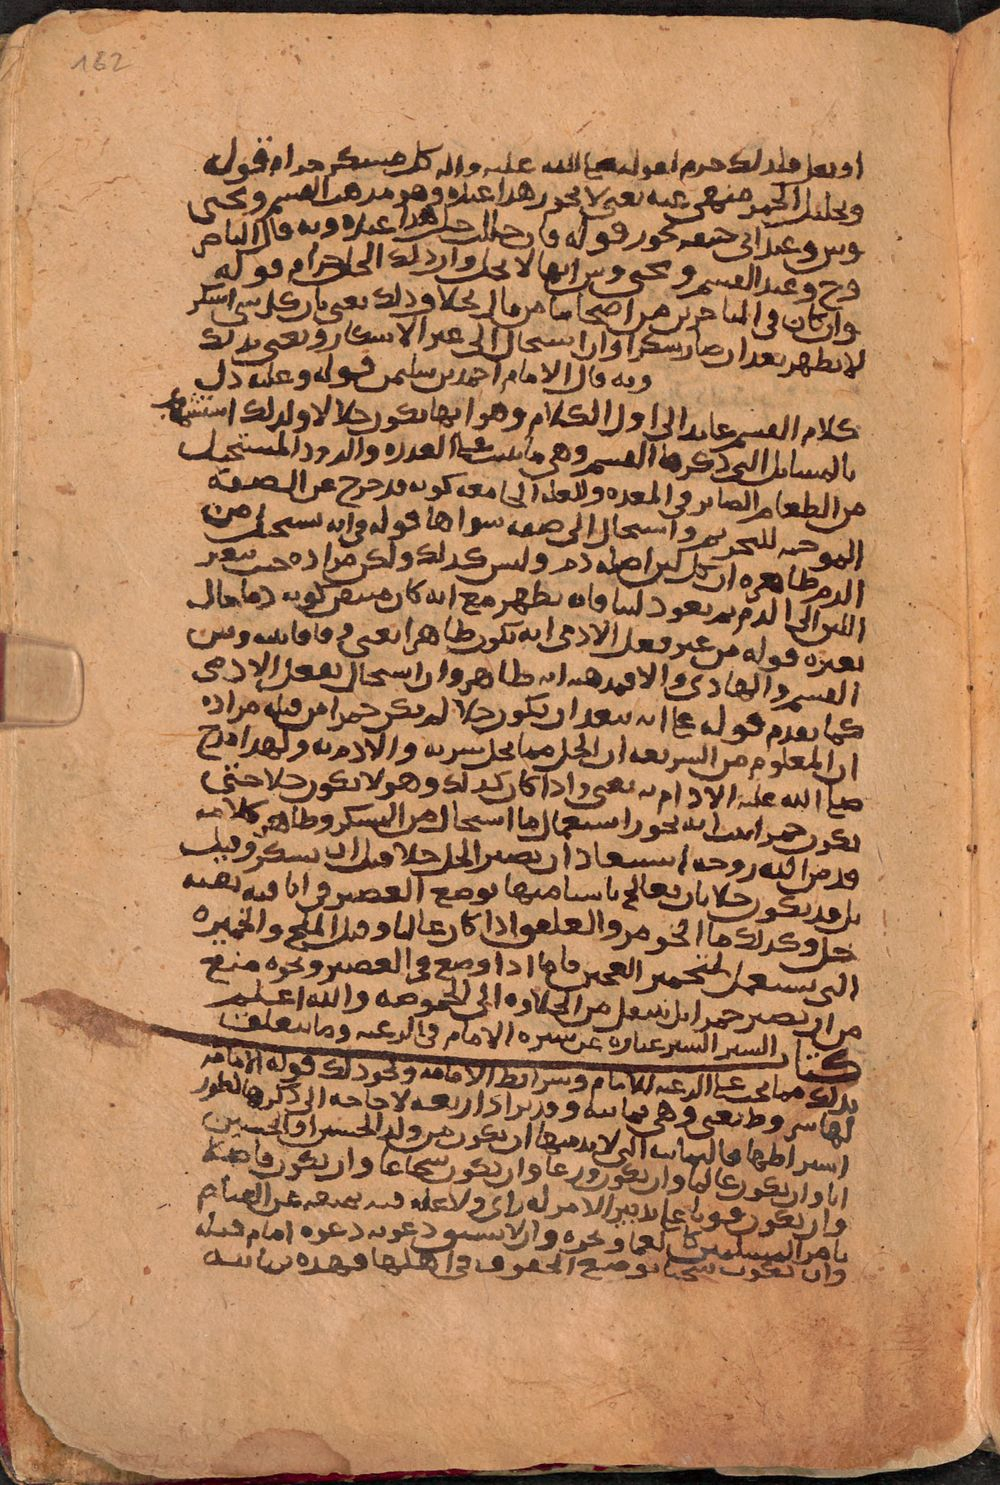 162
او يعل فلذلك حرم لقوله صلى الله عليه واله كل مسكر حرام قوله
وتخليل الخمر منهي عنه يعني لا يجوز هذا عندنا وهو مذهب القسم ويحيى
وش وعند ابي حنيفه يجوز قوله فان خللت حل هذا عندنا وبه قال الناصر
وح وعند القسم ويحيى وش انها لا تحل وان ذلك الخل حرام قوله
وان كان في المتاخرين من اصحابنا من قال بخلاف ذلك يعني بان كل شي اسكر
لا يطهر بعد ان صار مسكرا وان استحال الى غير الاسكار ويعني بذلك
وبه قال الامام احمد بن سليمن قوله وعليه دل
كلام القسم عايد الى اول الكلام وهو انها تكون حلالا ولذلك استشهد
بالمسايل التي ذكرها القسم وهي ما نبت على العذره والدود المستحيل
من الطعام الصاير في المعده والعله الجامعه كونه قد خرج عن الصفه
الموجبه للتحريم واستحال الى صفه سواها قوله في انه يستحيل من
الدم ظاهره ان كل لبن اصله دم وليس كذلك ولكن مراده حيث يتغير
اللبن الى الدم ثم يعود لبنا فانه يطهر مع انه كان متيقن كونه دما حال
تغيره قوله من غير فعل الادمي انه يكون طاهرا يعني
القسم والهادي والا فمذهبه انه طاهر وان استحال بفعل الادمي
كما تقدم قوله على انه يبعد ان يكون خلا لم يكن خمرا من قبل مراده
ان المعلوم من الشريعه ان الخل مما يحل شربه والادم به ولهذا مدح
صلى الله عليه الادام به يعني واذا كان كذلك وهو لا يكون خلا حتى
يكون خمرا ثبت انه يجوز استعمال ما استحال من المسكر وظاهر كلامه
قدس الله روحه استبعاد ان يصير الخل خلا قبل ان يسكر وقيل
بل قد يكون خلا بان يعالج باشيا منها بوضع العصير في انا فيه بقيه
خل وكذلك ما الخومر والعلقوا اذا كان غالبا وقيل الملح والخميره
التي يستعمل لتخمير العجين فانها اذا وضع في العصير ونحوه منع
من ان يصير خمرا بل ينتقل من الحلاوه الى الحموضه والله اعلم
كتاب السير السير عباره عن سيره الامام في الرعيه وما يتعلق
بذلك مما يجب على الرعيه للامام وشرايط الامامه ونحو ذلك قوله الامامه
لها شروط يعني وهي ثمانيه وقد يزاد اربعه لا حاجه الى ذكرها لظهور
اشتراطها فالثمانيه التي لا بد منها ان يكون من ولد الحسن او الحسين
ابا وان يكون عالما وان يكون ورعا وان يكون شجاعا وان يكون فاضلا
وان يكون قويا على تدبير الامر له راي ولا عله فيه تمنعه عن القيام
بامر المسلمين كالعما ونحوه وان لا تسبق دعوته دعوه امام قبله
وان يكون سخيا بوضع الحقوق في اهلها فهذه ثمانيه